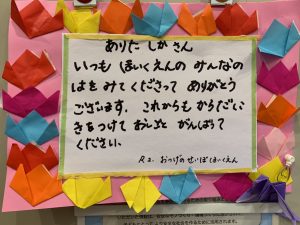 ありた しか さん
いつも ほいくえんの みんなの
はを みてくださって ありがとう
ございます。これからも からだに
きをつけて おしごと がんばって
ください。
R2. おつげの せいぼ ほいくえん